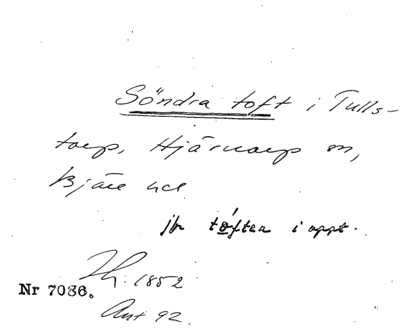 Söndra toft i Tulls-
torp, Hjärnarp sn,
Bjäre hd
jfr tóften i uppt.
Lh. 1852
Nr 7086.
Ant 92.